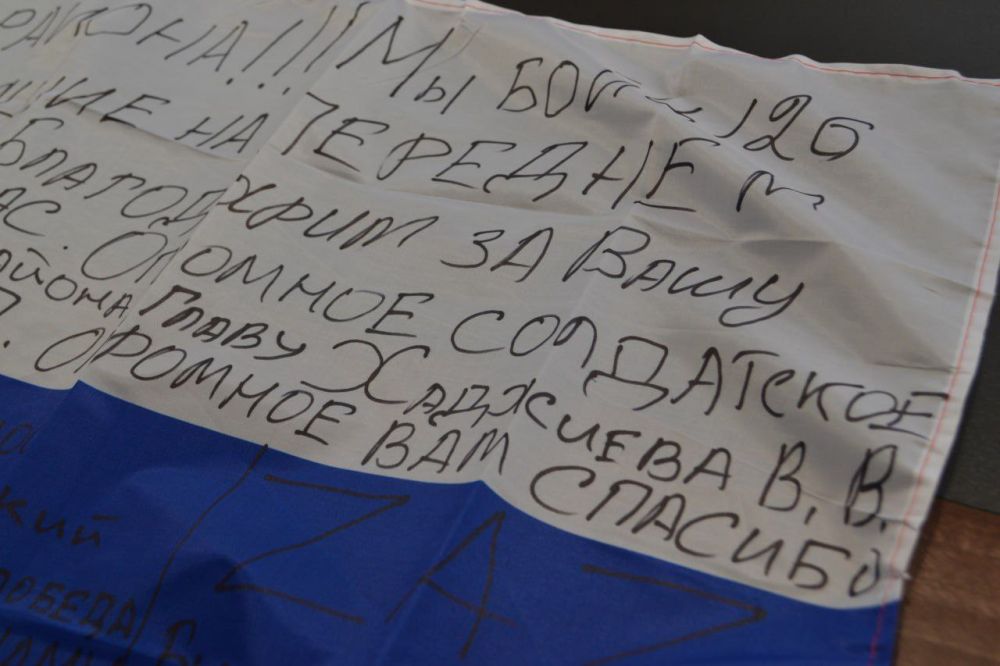 РАЙОНА!!! МЫ БОЙЦЫ 126
НА ПЕРЕДНЕМ
БЛАГОДАРИМ ЗА ВАШУ
ОГРОМНОЕ СОЛДАТСКОЕ
РАЙОНА ГЛАВУ ХАДЖИЕВА В. В.
ОГРОМНОЕ ВАМ СПАСИБО
ZA
ПОБЕДА